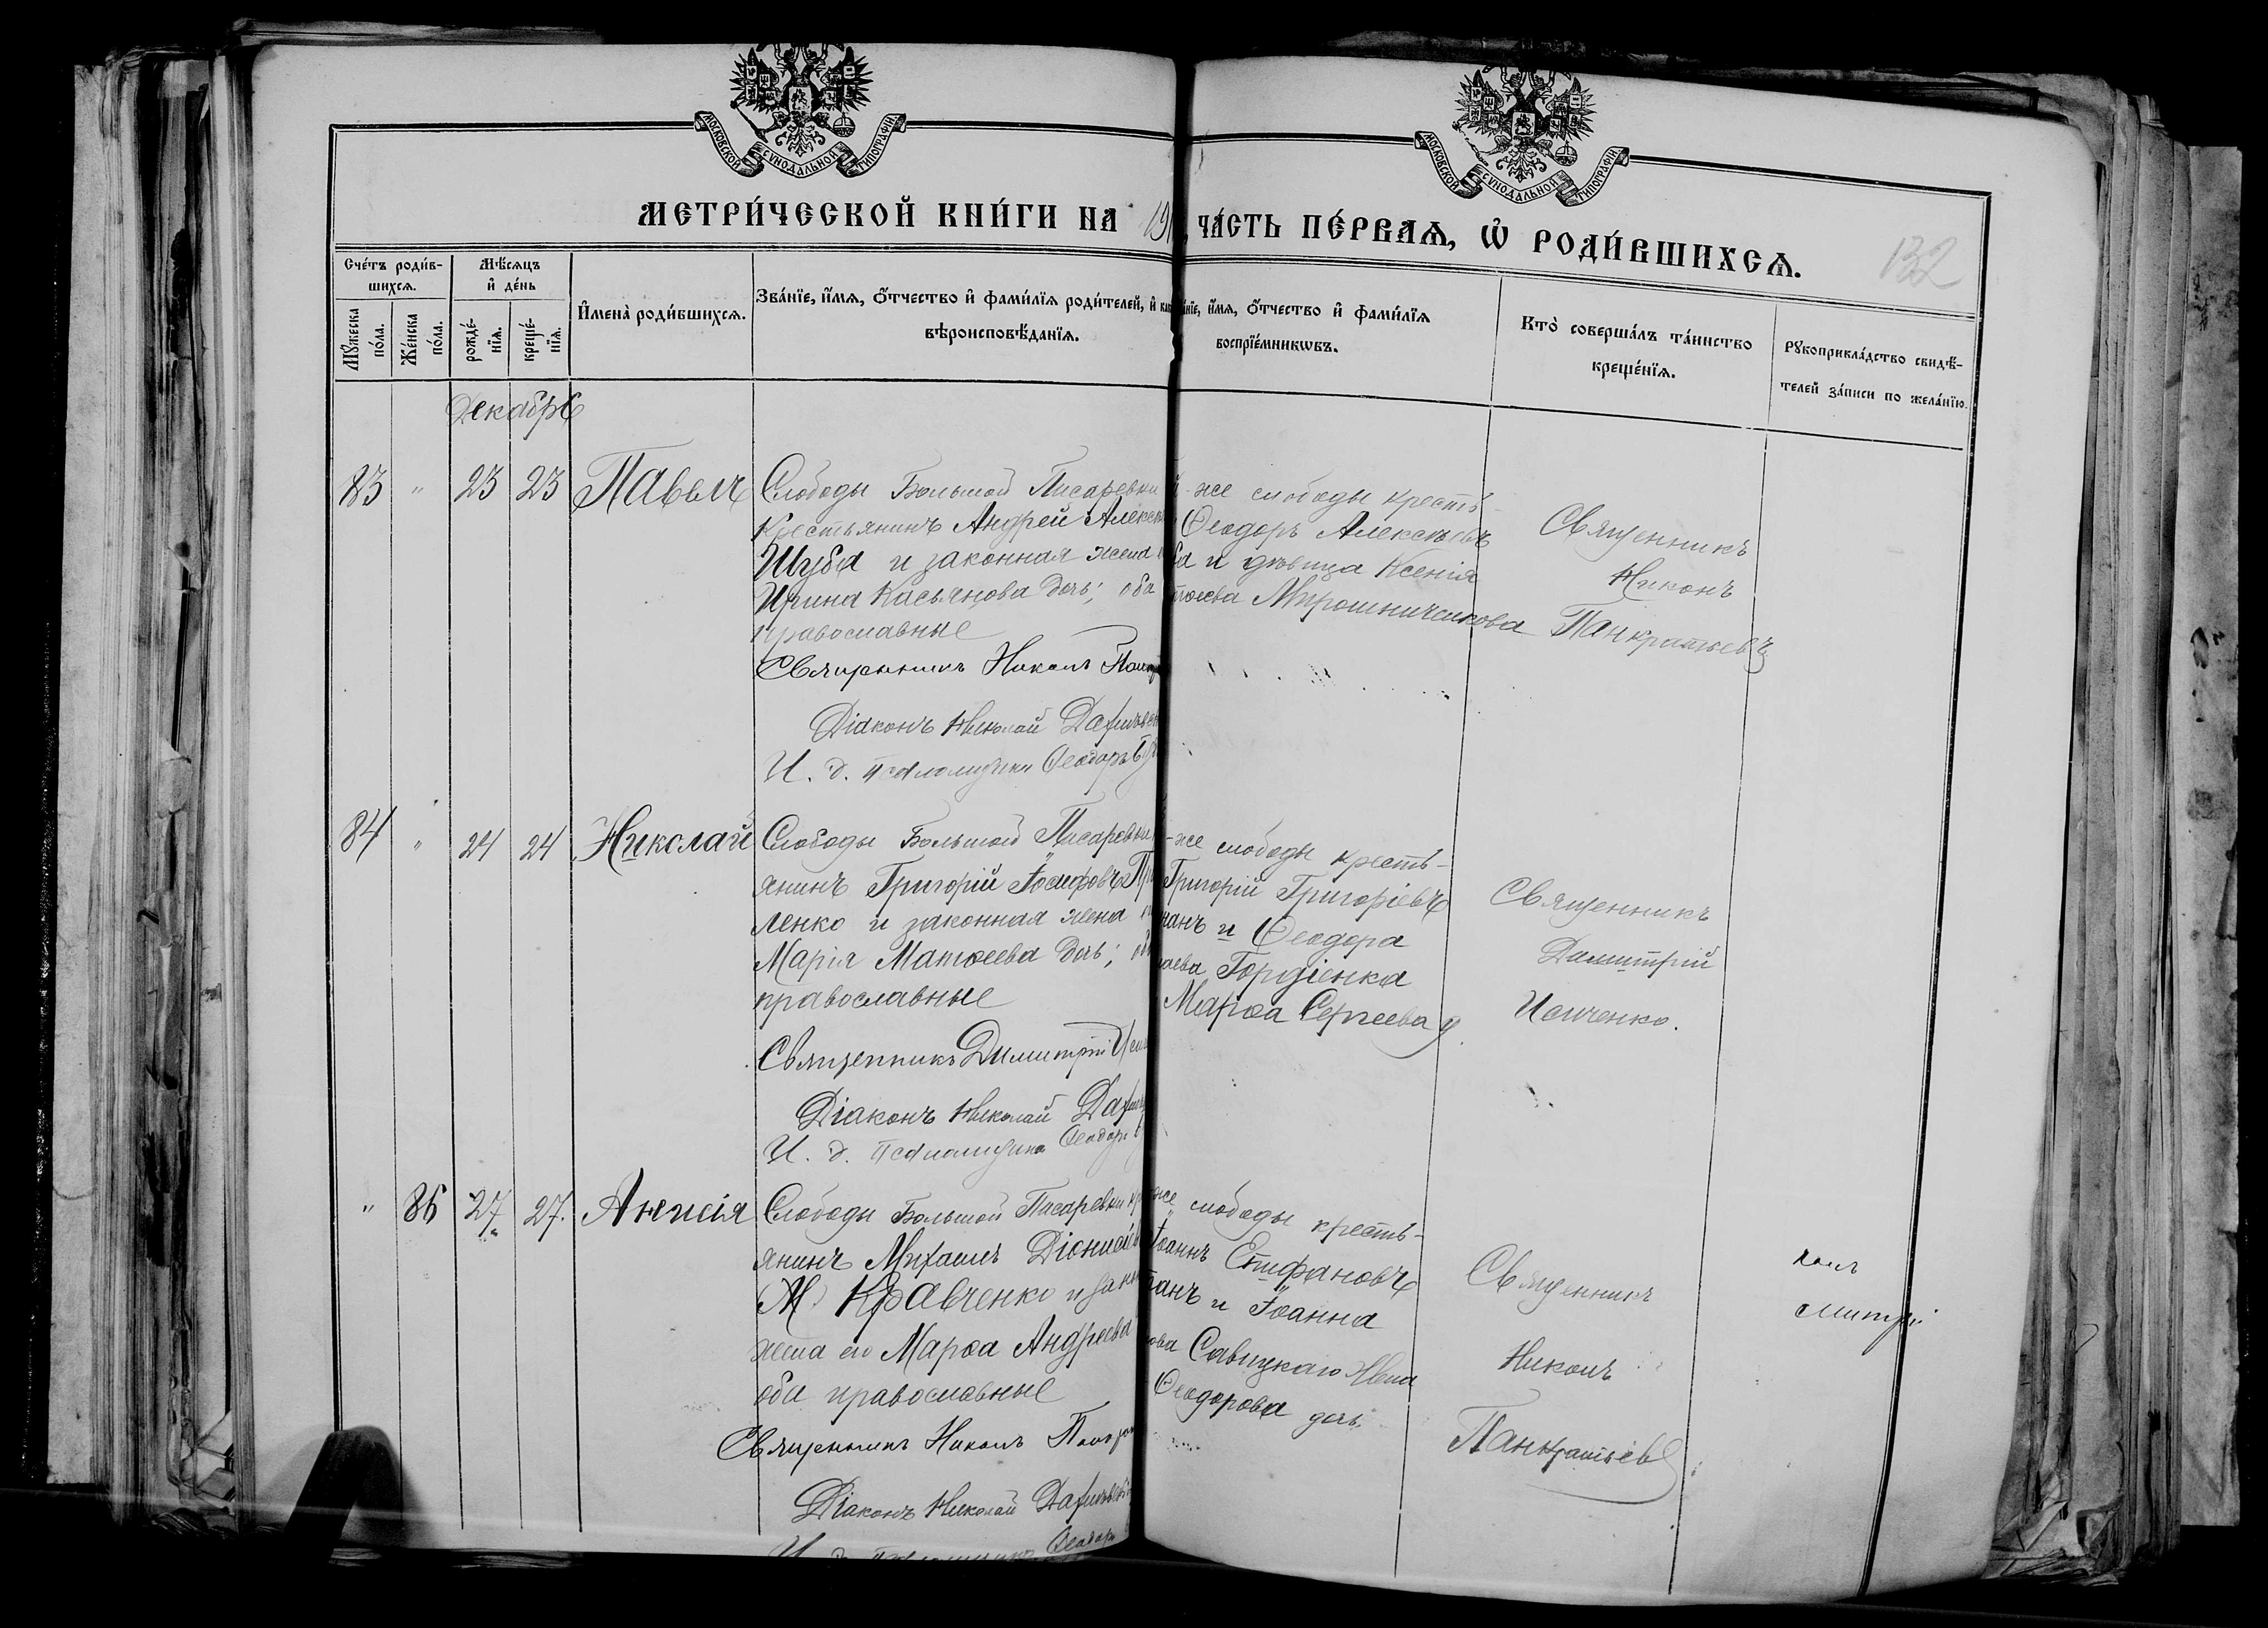 МОСКОВСКОЙ СУНОДАЛЬНОЙ ТИПОГРАФІИ
МОСКОВСКОЙ СУНОДАЛЬНОЙ ТИПОГРАФІИ
МЕТРИ́ЧЕСКОЙ КНИ́ГИ НА 19 , ЧА́СТЬ ПЕ́РВАѦ, Ѽ РОДИ́ВШИХСѦ.
132
Сче́тъ роди́в-
шихсѧ.
Мѣ́сѧцъ
и҆ де́нь
Мꙋ́жеска по́ла.
Же́нска по́ла.
рожде́-
нїѧ.
креще́-
нїѧ.
И҆мена̀ роди́вшихсѧ.
Зва́нїе, и҆́мѧ, ѻ҆́тчество и҆ фами́лїѧ роди́телей, и҆
вѣроисповѣ́данїѧ.
и҆́мѧ, ѻ҆́тчество и҆ фами́лїѧ
воспрїе́мникѡвъ.
Кто̀ соверша́лъ та́инство
креще́нїѧ.
Рꙋкоприкла́дство свидѣ́-
телей за́писи по жела́нїю.
Декабрь
83 " 23 23 Павелъ
Слободы Большой Писаревки
Крестьянинъ Андрей Алексѣ
Шуба и законная жена
Ирина Касьянова дочь; оба
православные
Священникъ Никонъ
Діаконъ Николай
И. д. псаломщика Ѳеодоръ
же слободы кресть-
Ѳеодоръ Алексѣевъ
ба и дѣвица Ксенія
Мирошниченкова
Священникъ
Никонъ
Панкратьевъ
84 " 24 24 Николай
Слободы Большой Писаревки
янинъ Григорій Іосифовъ
ленко и законная жена
Марія Матѳеева дочь;
православные
Священникъ Димитрій
Діаконъ Николай
И. д. псаломщика Ѳеодоръ
-же слободы кресть-
Григорій Григоріевъ
нанъ и Ѳеодора
Гордіенка
Марѳа Сергеева д.
Священникъ
Димитрій
" 86 27 27. Анисія
Слободы Большой Писаревки
янинъ Михаилъ Діонисіевъ
Кравченко и
жена его Марѳа Андреева
оба православные
Священникъ Никонъ
Діаконъ Николай
Ѳеодоръ
же слободы кресть-
Іоаннъ Епифановъ
и Іоанна
Савицкаго жена
Ѳеодорова дочь.
Священникъ
Никонъ
Панкратьевъ